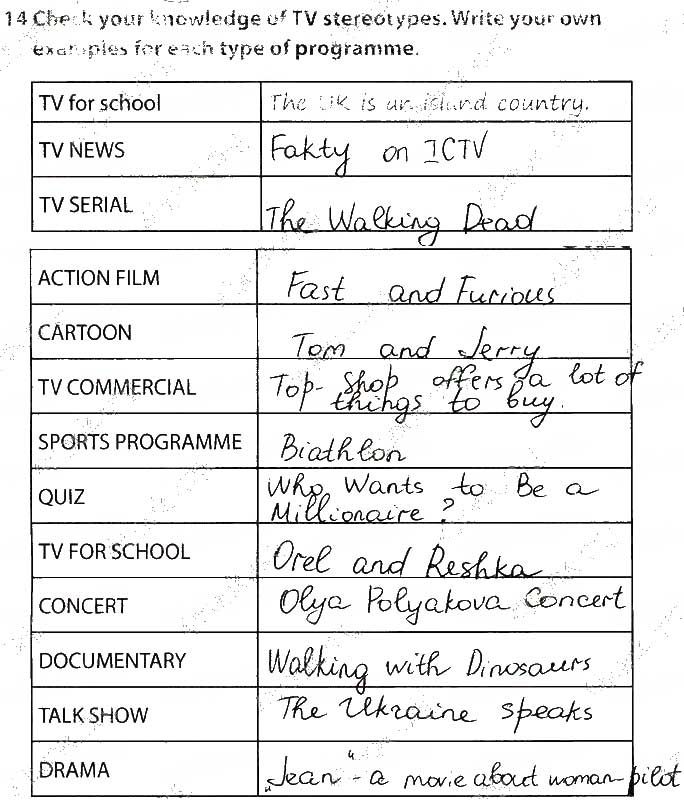 14 Check your knowledge of TV stereotypes. Write your own
examples for each type of programme.
TV for school The UK is an island country.
TV NEWS Fakty on ICTV
TV SERIAL The Walking Dead
ACTION FILM Fast and Furious
CARTOON Tom and Jerry
TV COMMERCIAL Top-Shop offers a lot of
things to buy.
SPORTS PROGRAMME Biathlon
QUIZ Who Wants to Be a
Millionaire?
TV FOR SCHOOL Orel and Reshka
CONCERT Olya Polyakova Concert
DOCUMENTARY Walking with Dinosaurs
TALK SHOW The Ukraine speaks
DRAMA „Jean“ - a movie about woman-pilot